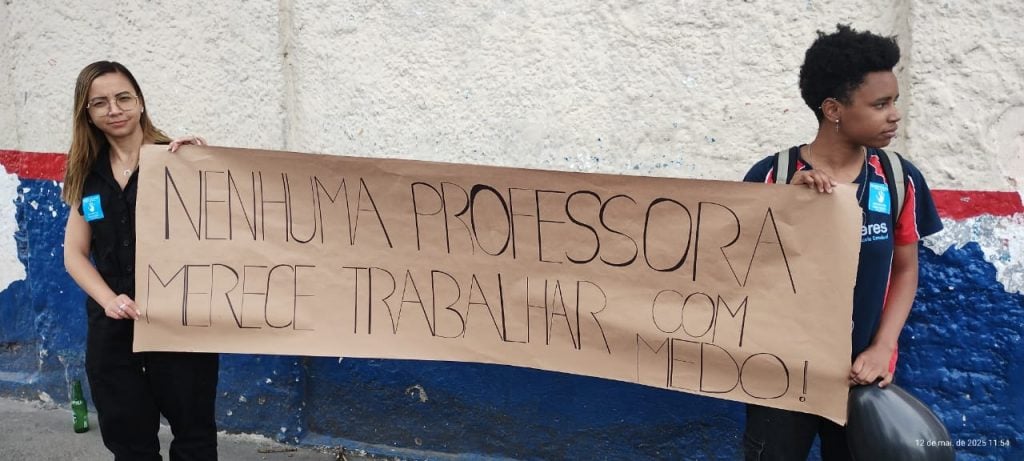 NENHUMA PROFESSORA
MERECE TRABALHAR COM
MEDO!
eres
12 de mai. de 2025 11:54